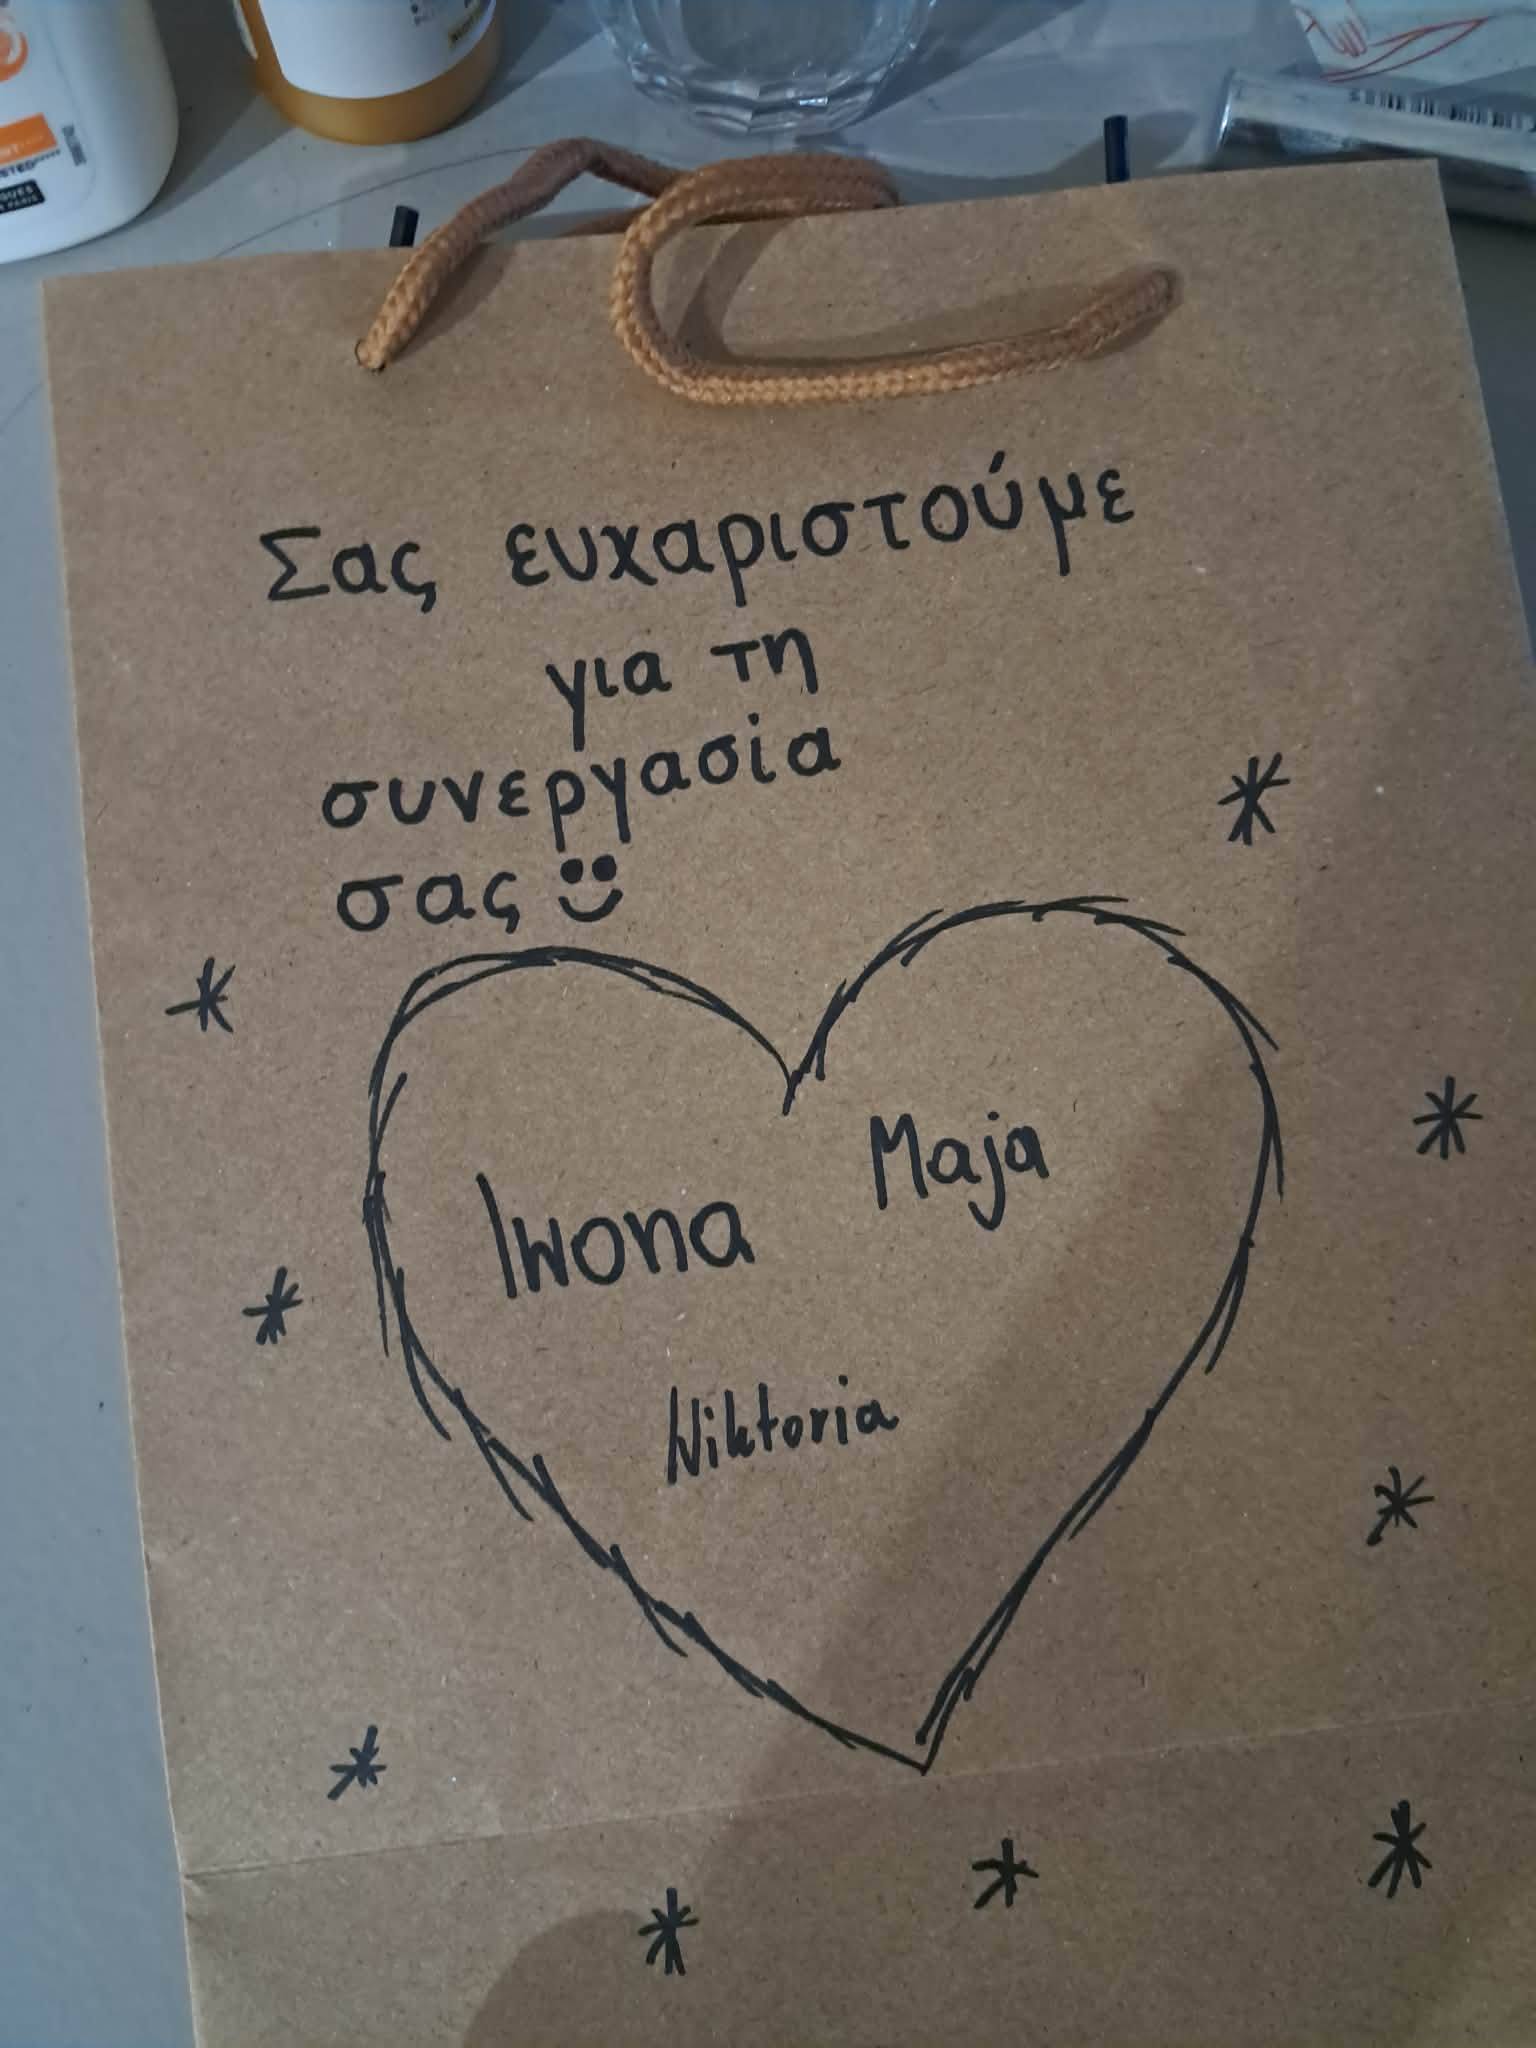 Σας ευχαριστούμε
για τη
συνεργασία
σας
Maja
Iwona
Wiktoria